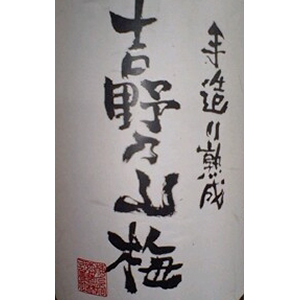 手造り熟成
吉野乃山梅